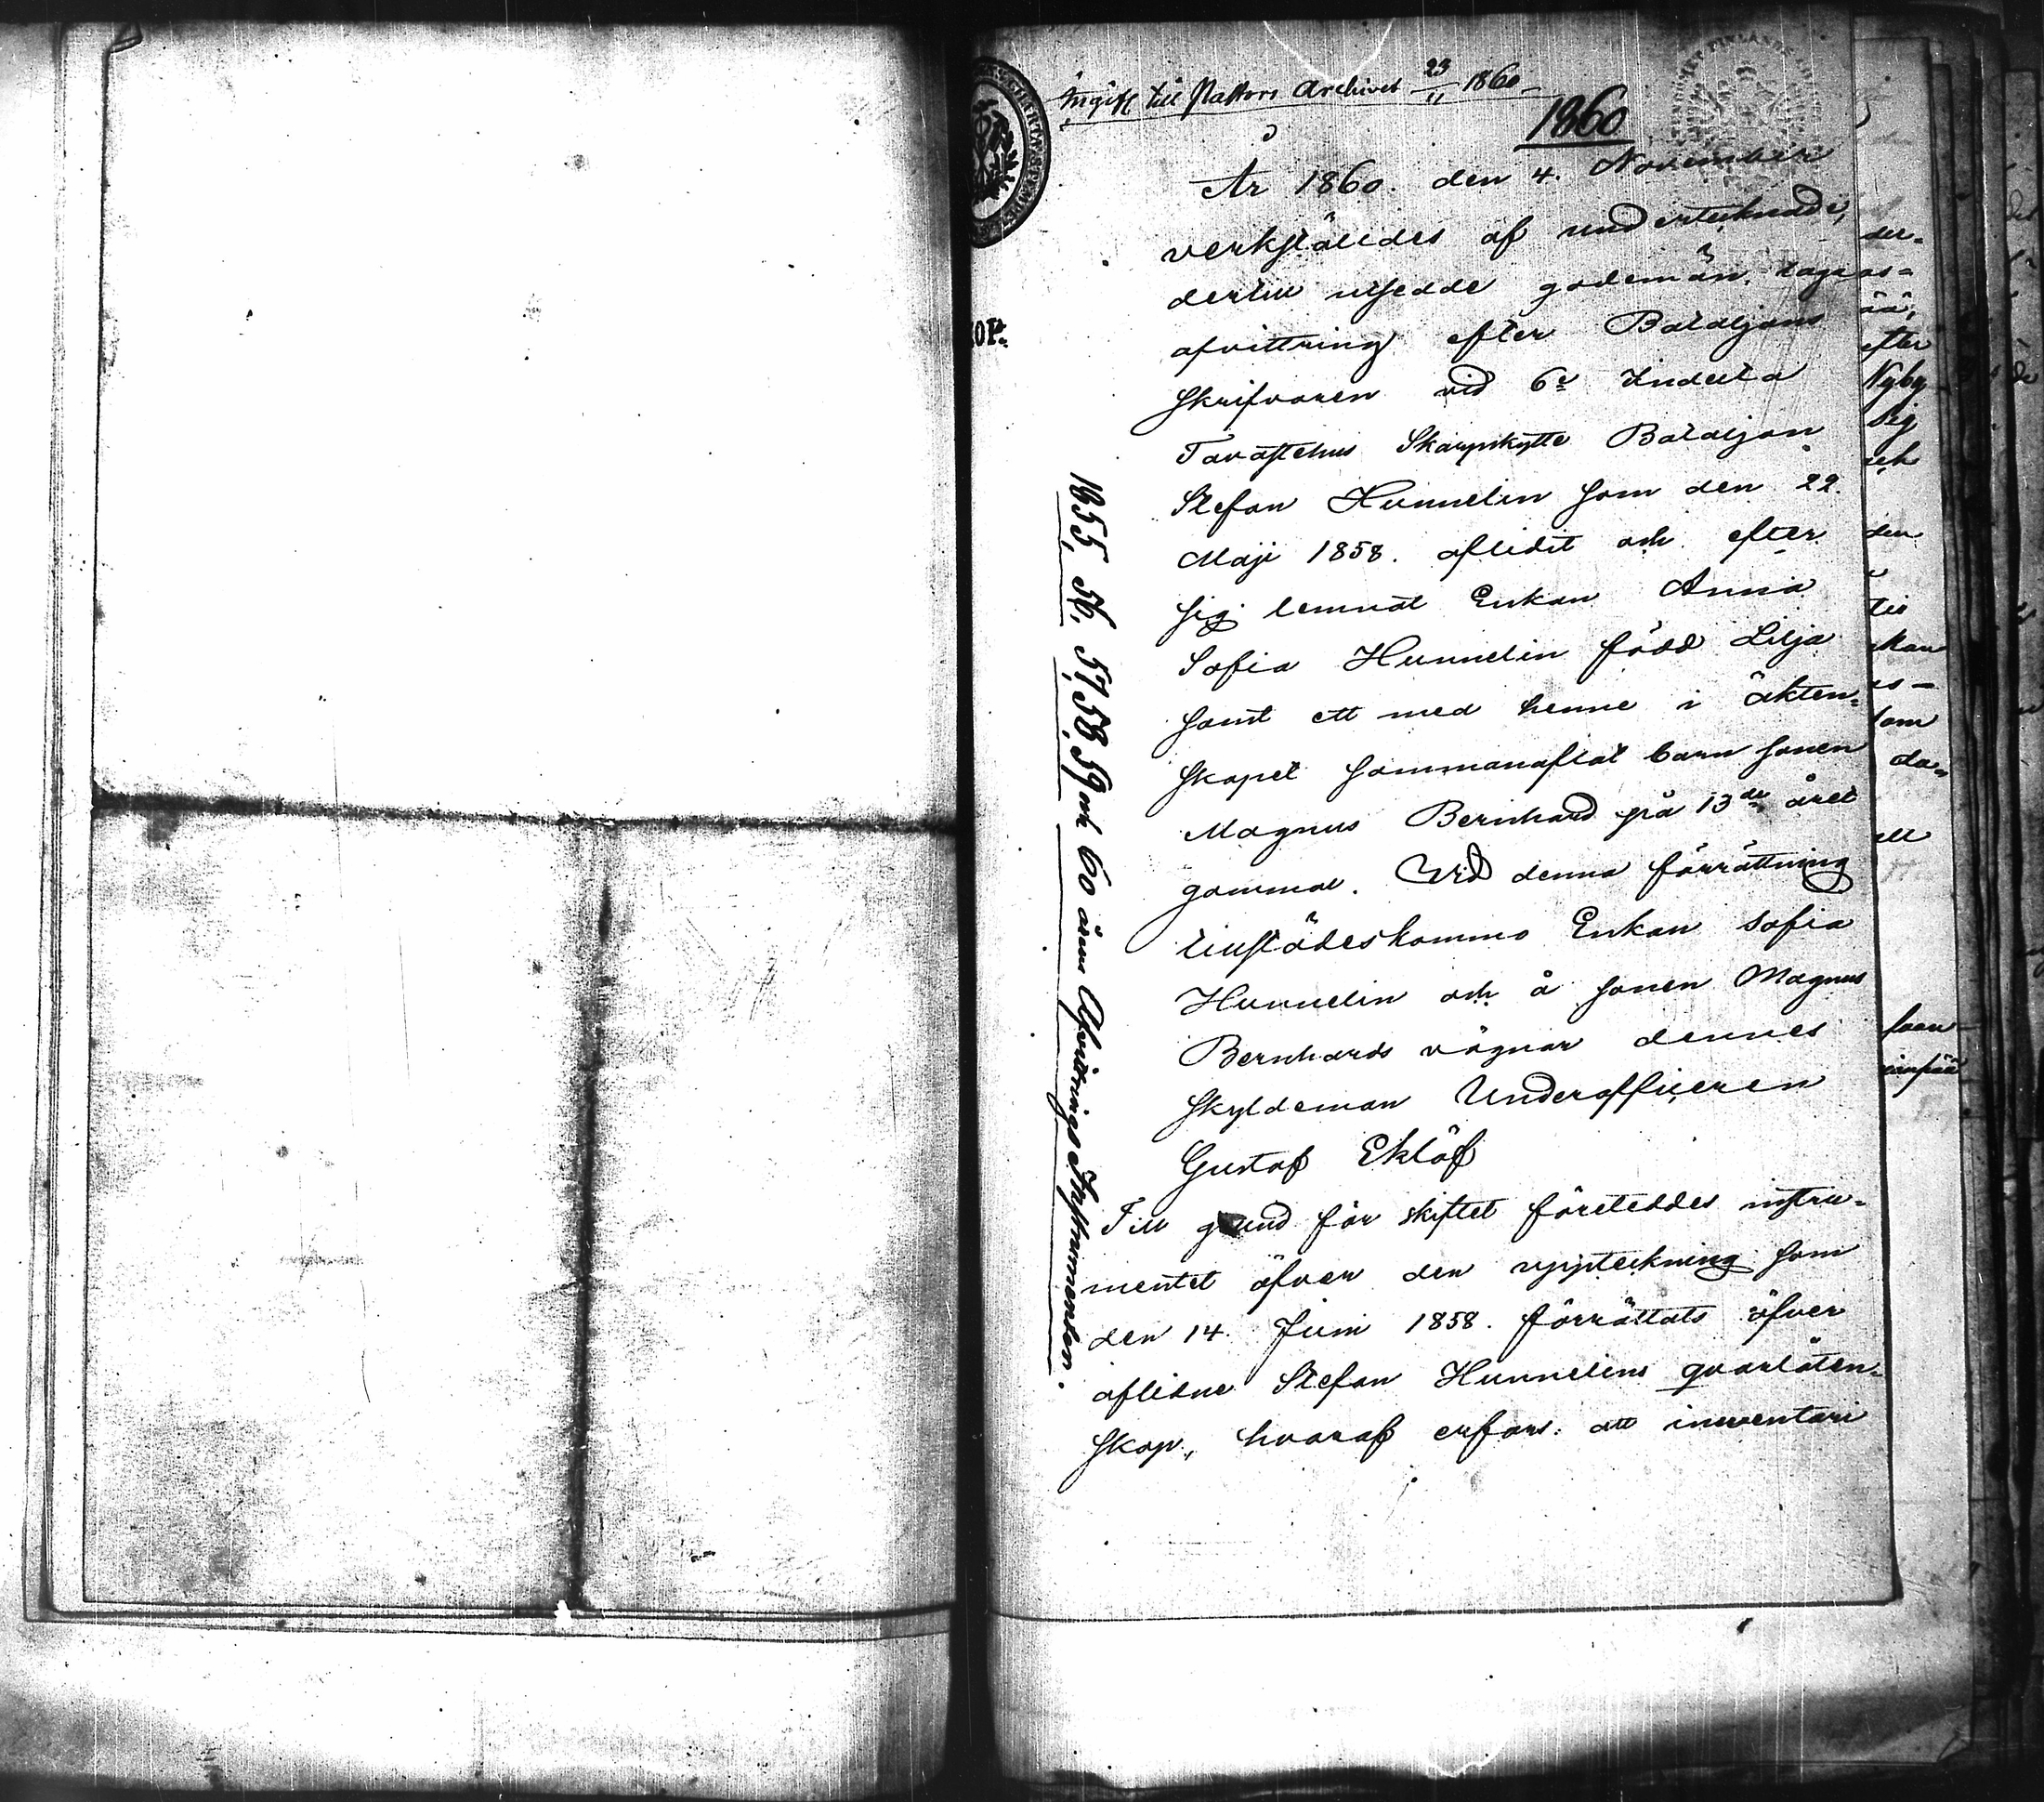 Ingift till Pastors Archivet 23/11 1860
1860
År 1860. den 4. November
verkställdes af undertecknade,
dertill utsedde godemän, laga
afvittring efter Bataljons
skrifvaren vid 6e Indelta
Tavastehus Skarpskytte Bataljon
Stefan Hunnelin som den 22.
Maji 1858. aflidit och efter
sig lemnat Enkan Anna
Sofia Hunnelin född Lilja
samt ett med henne i äkten=
skapet sammanaflat barn sonen
Magnus Bernhard på 13de året
gammal. Vid denna förrättning
tillstädeskommo Enkan Sofia
Hunnelin och å sonen Magnus
Bernhards vägnar dennes
skyldeman Underofficeren
Gustaf Eklöf
Till grund för skiftet företeddes instru=
mentet öfver den uppteckning som
den 14. Juni 1858. förrättats öfver
aflidne Stefan Hunnelins qvarlåten=
skap, hvaraf erfars: att inventari
1855, 56, 57, 58, 59 och 60 årens Afvittrings Instrumenten.
der=
as=
efter
Nyby
sig
och
den